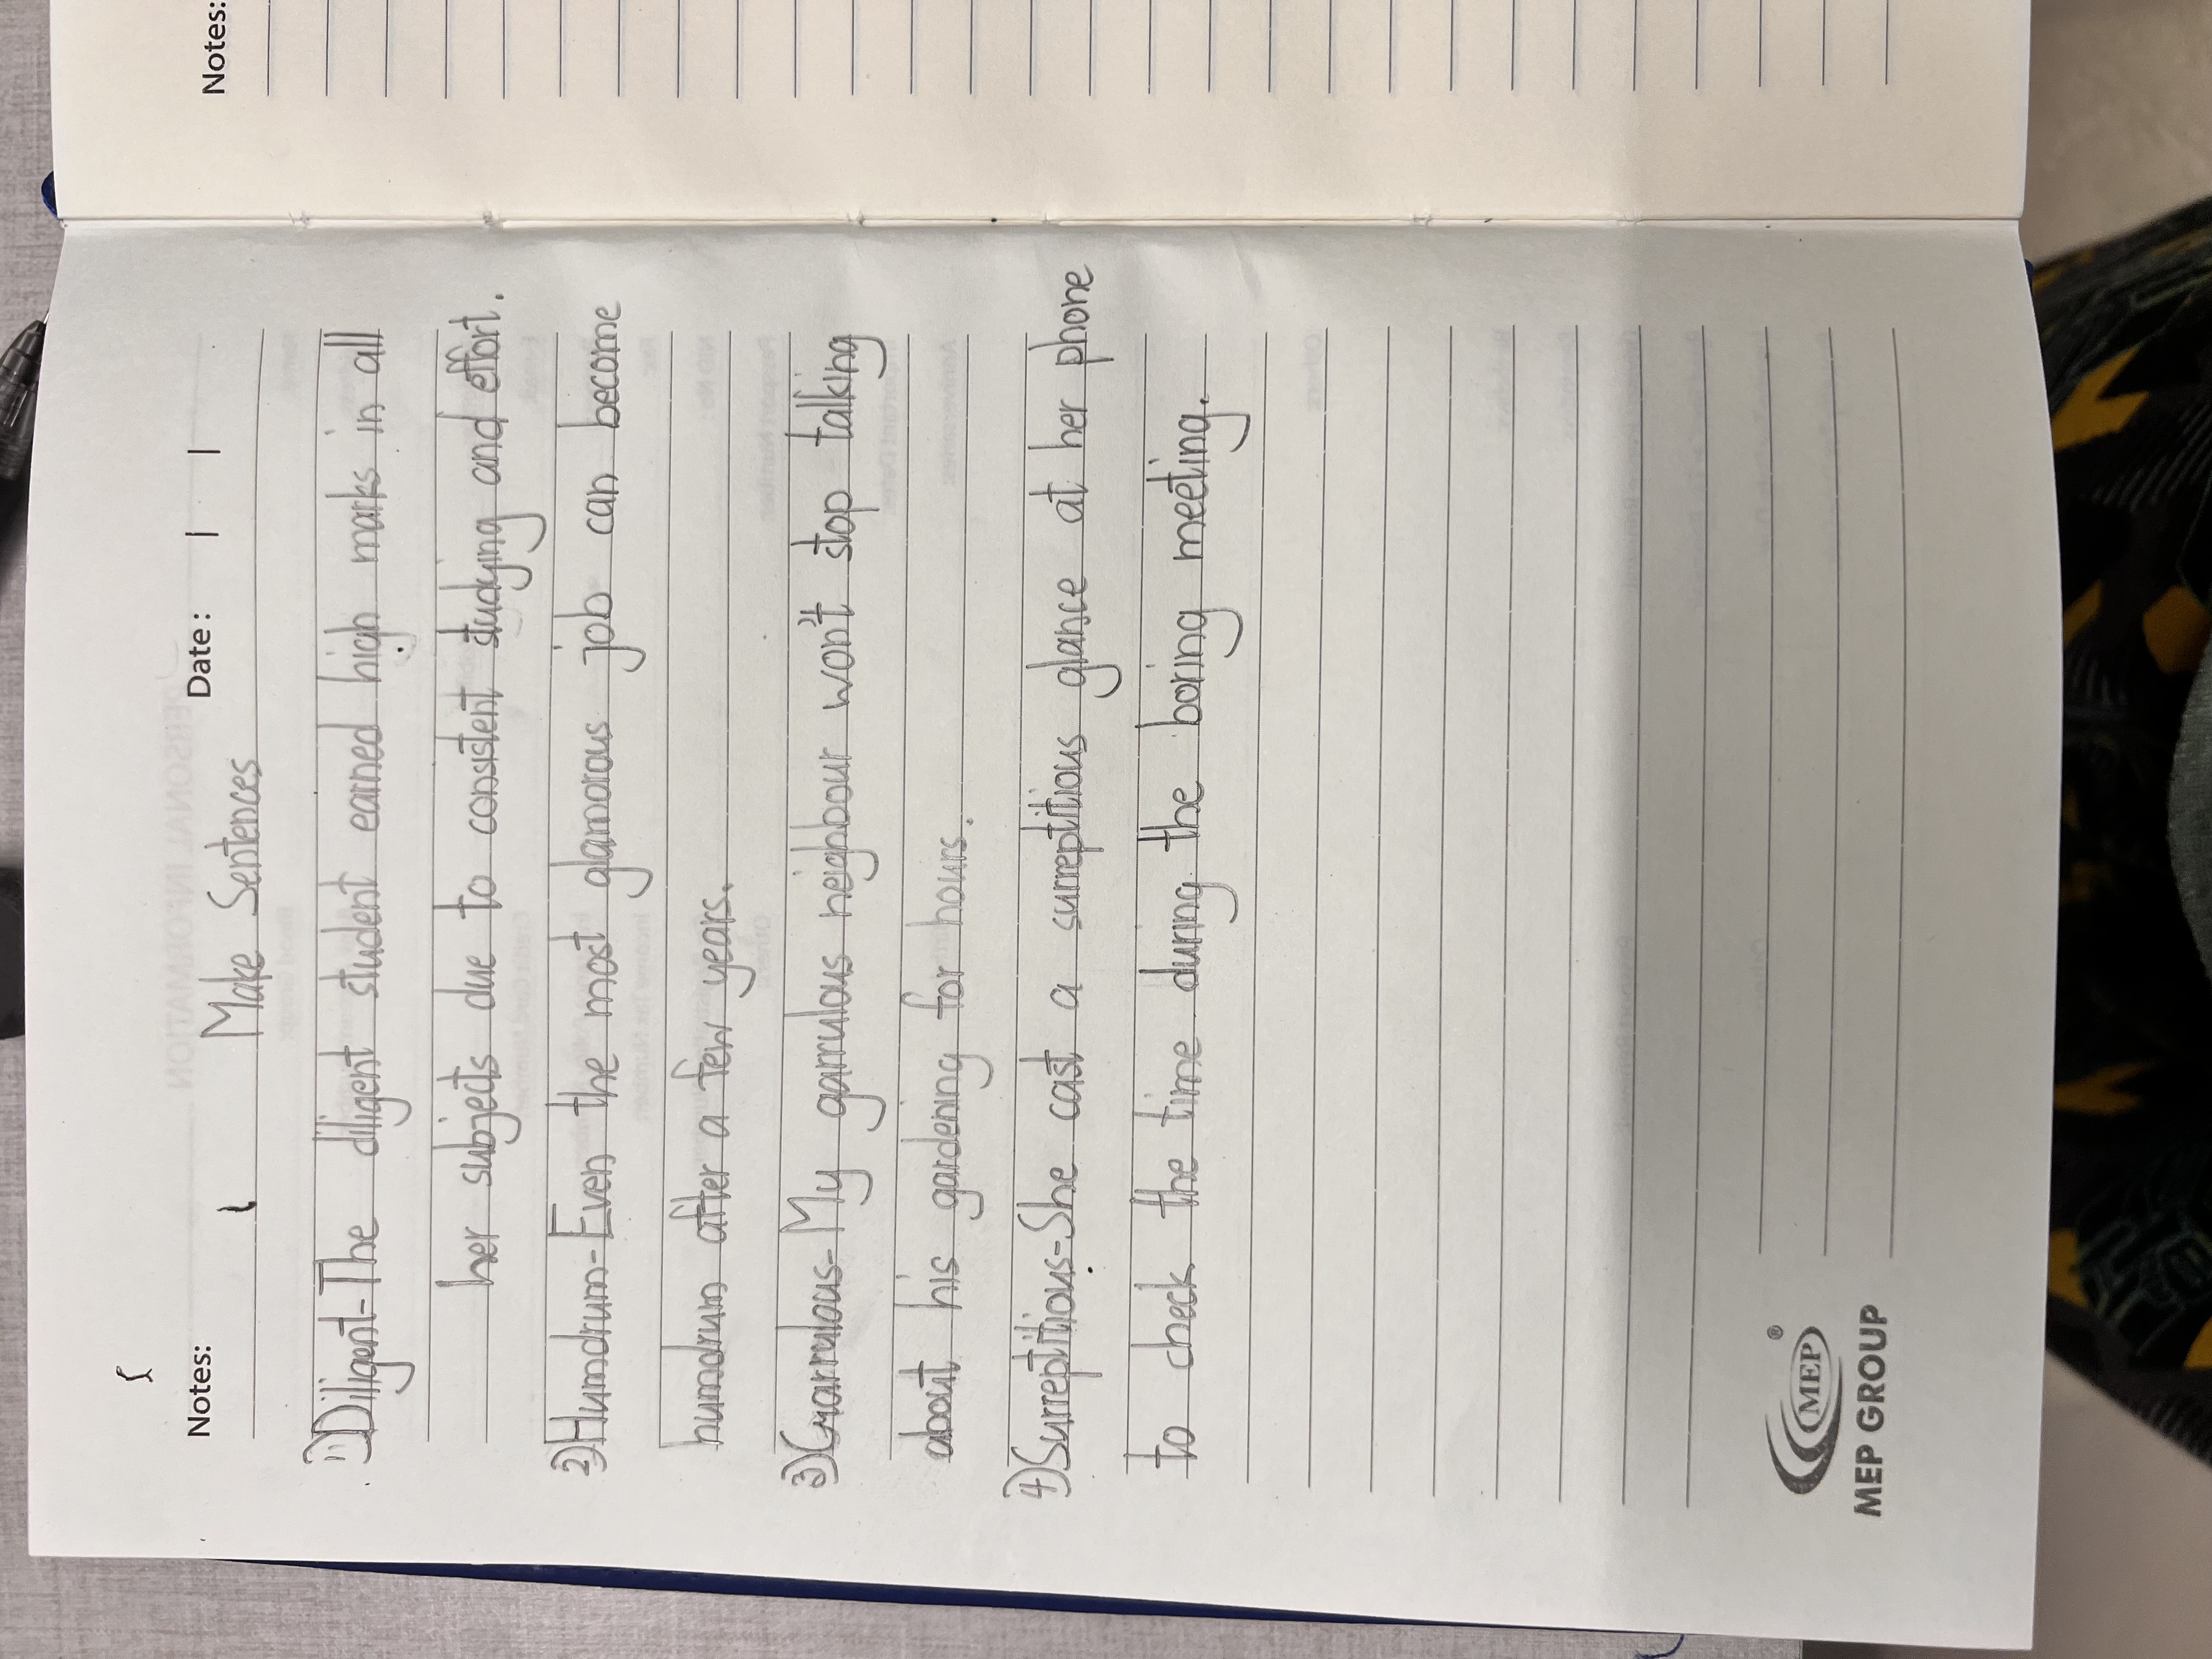 Notes:
Date: / /
Make Sentences
1) Diligent-The diligent student earned high marks in all
her subjects due to consistent studying and effort.
2) Humdrum-Even the most glamorous job can become
humdrum after a few years.
3) Garrulous-My garrulous neighbour won't stop talking
about his gardening for hours.
4) Surreptitious-She cast a surreptitious glance at her phone
to check the time during the boring meeting.
MEP ®
MEP GROUP
Notes: